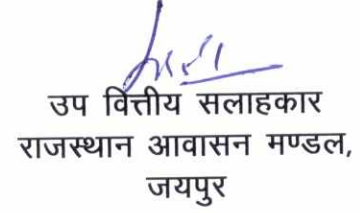 उप वित्तीय सलाहकार
राजस्थान आवासन मण्डल,
जयपुर